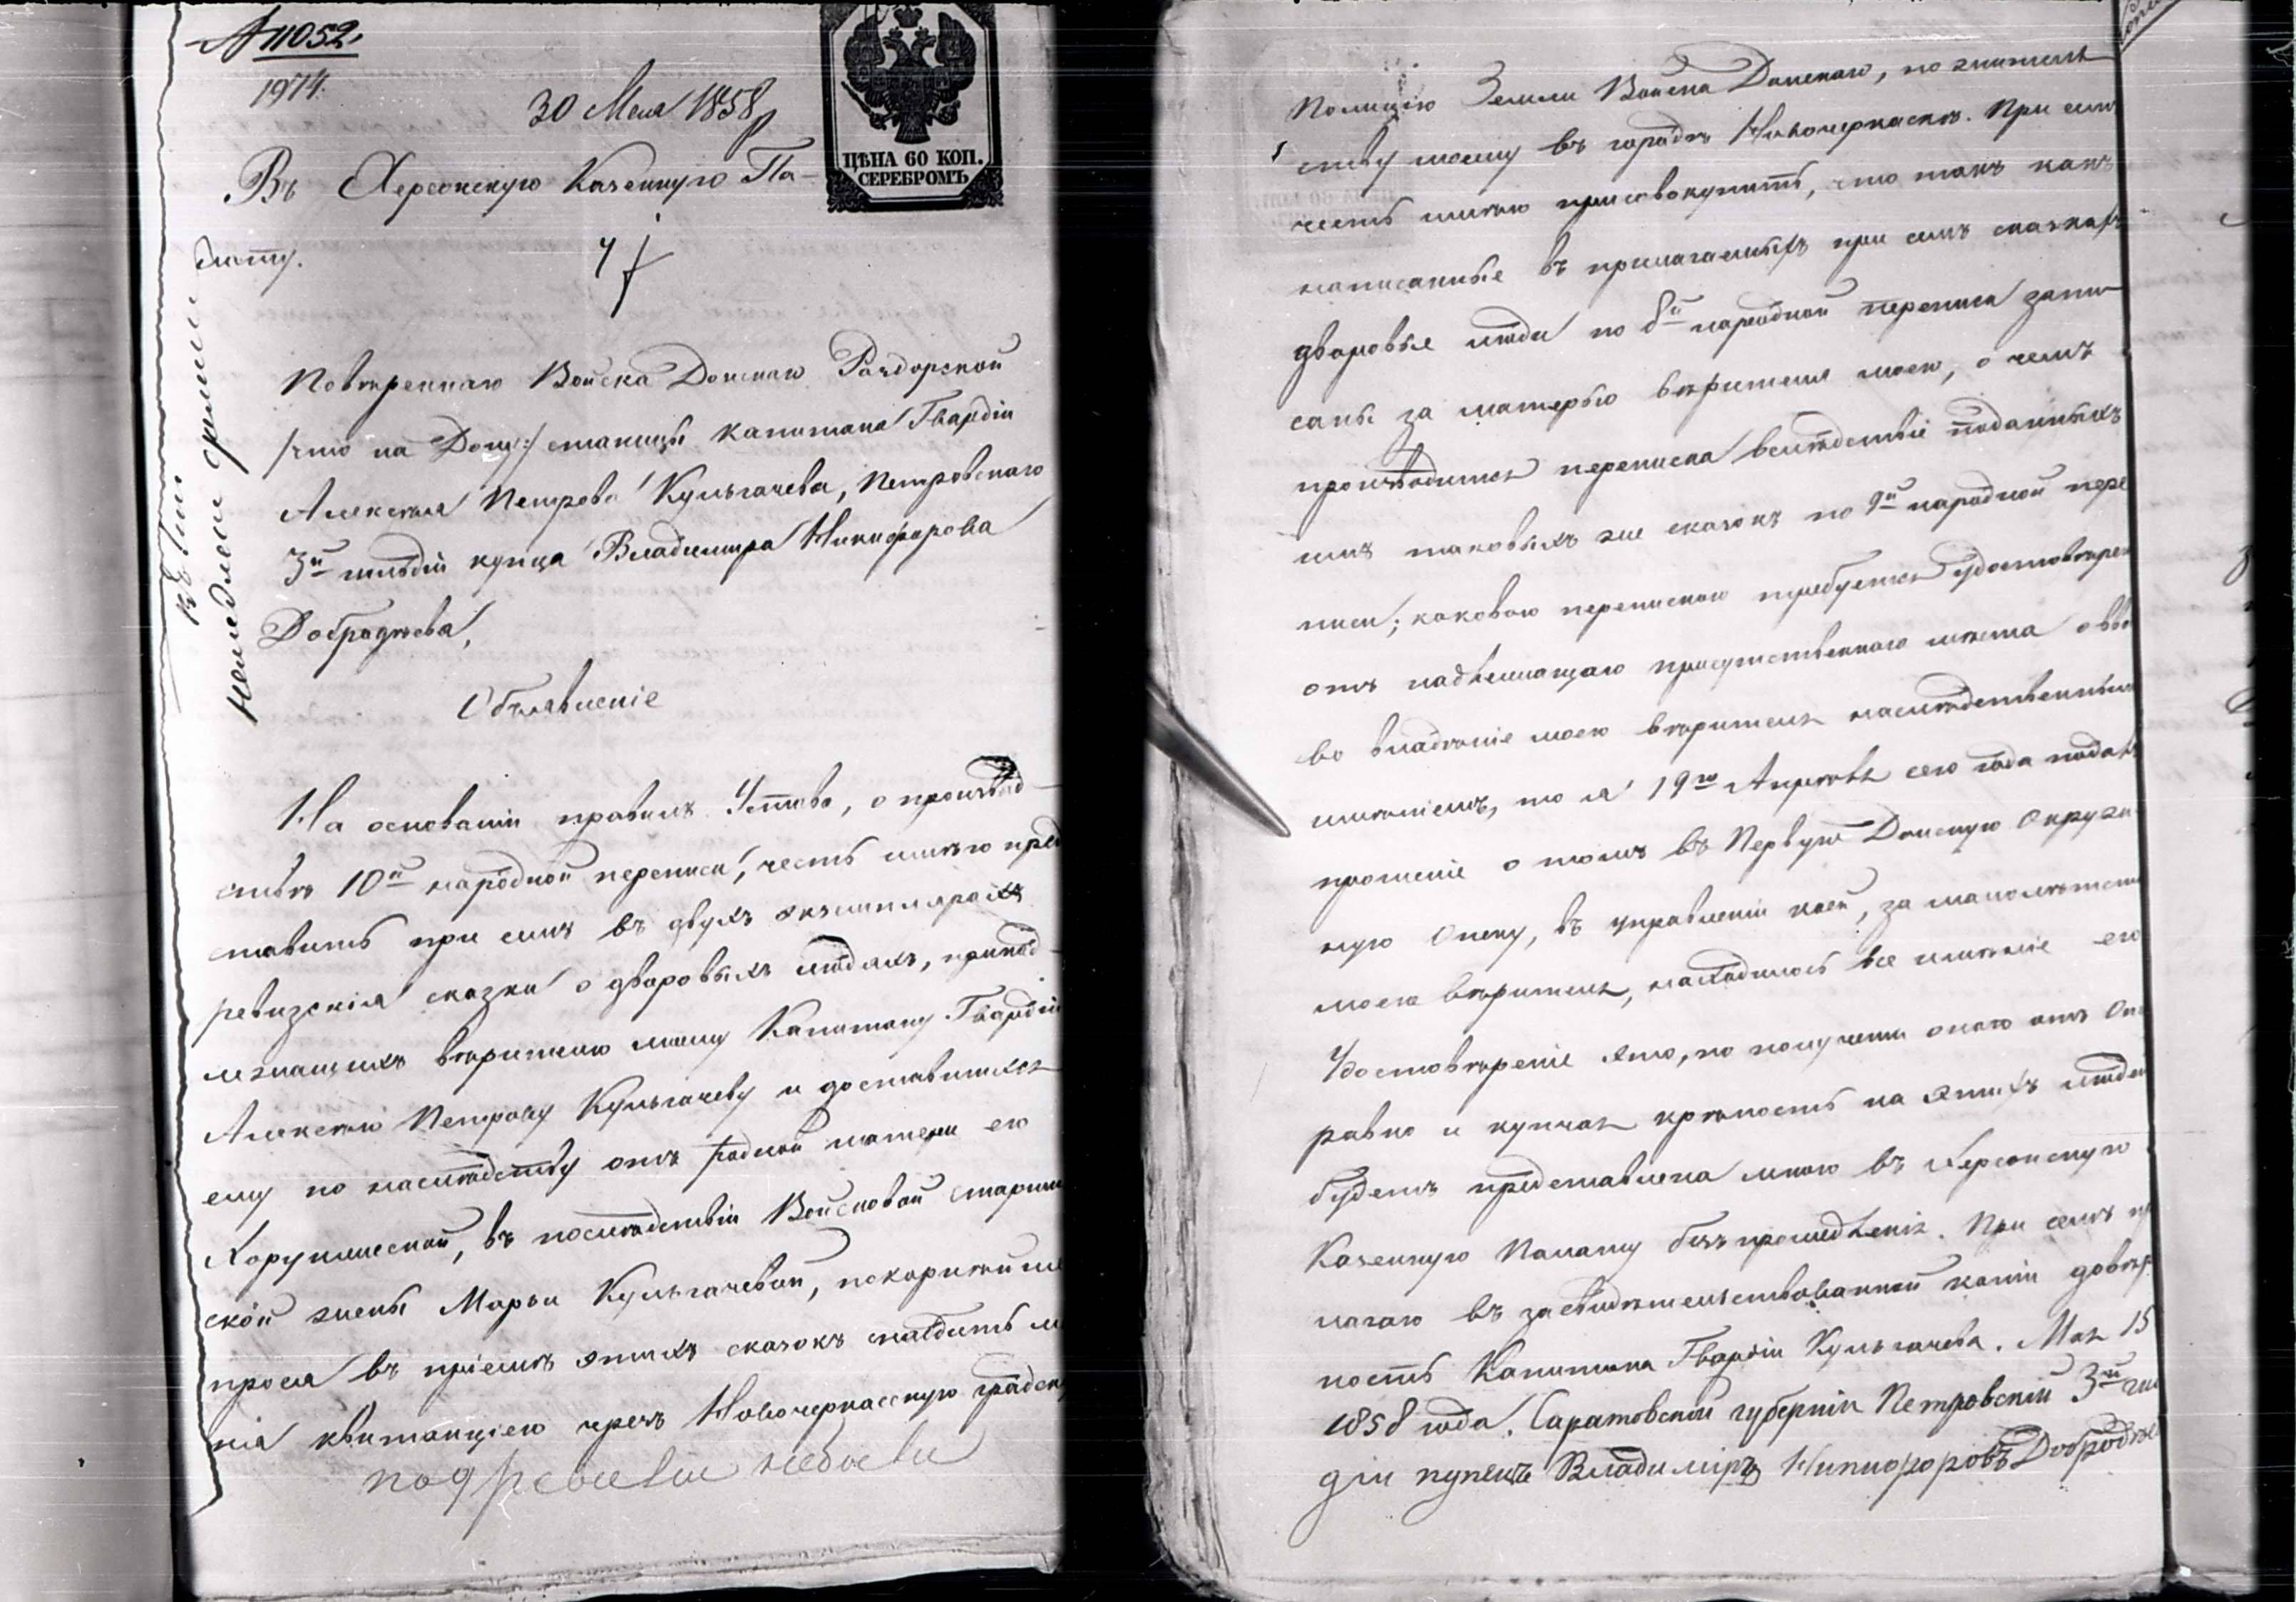 № 11052.
1974.
30 Мая 1858
ЦѢНА 60 КОП.
СЕРЕБРОМЪ
Въ Херсонскую Казенную Па-
лату.
4
Повѣреннаго Войска Донскаго Раздорской
/что на Дону:/ станицы Капитана Гвардіи
Алексѣя Петрова Кульгачева, Петровскаго
3й гильдіи купца Владимира Никифорова
Добродѣева,
Объявленіе
На основаніи правилъ Устава, о производ-
ствѣ 10й народной переписи, честь имѣю пред
ставить при семъ въ двухъ экземплярахъ
ревизскія сказки о дворовыхъ людяхъ, принад-
лежащихъ вѣрителю моему Капитану Гвардіи
Алексѣю Петрову Кульгачеву и доставшихся
ему по наслѣдству отъ родной матери его
Хорунжеской, въ послѣдствіи Войсковой старшин
ской жены Марьи Кульгачевой, покорнѣйше
прося въ пріемѣ этихъ сказокъ снабдить ме
ня квитанціею чрезъ Новочеркасскую градскую
немедленно
Полицію Земли Войска Донскаго, по житель
ству моему въ городѣ Новочеркаскѣ. При семъ
честь имѣю присовокупить, что такъ какъ
написанные въ прилагаемыхъ при семъ сказкахъ
дворовые люди по 8й народной переписи запи
саны за матерью вѣрителя моего, о чемъ
производится переписка вслѣдствіе поданныхъ
имъ таковыхъ же сказокъ по 9й народной пере
писи; каковою перепискою требуется удостовѣрен
отъ надлежащаго присутственнаго мѣста о вво
во владѣніе моего вѣрителя наслѣдственнымъ
имѣніемъ, то я 19го Апрѣля сего года подалъ
прошеніе о томъ въ Первую Донскую Окруж
ную Опеку, въ управленіи коей, за малолѣтст
моего вѣрителя, находилось все имѣніе его
Удостовѣреніе это, по полученіи онаго отъ Оп
равно и купчая крѣпость на этихъ людей
будетъ представлена мною въ Херсонскую
Казенную Палату безъ промедленія. При семъ пр
лагаю въ засвидѣтельствованной копіи довѣр
ность Капитана Гвардіи Кульгачева. Мая 15
1858 года. Саратовской губерніи Петровскій 3й гил
діи купецъ Владиміръ Никифоровъ Добродѣе